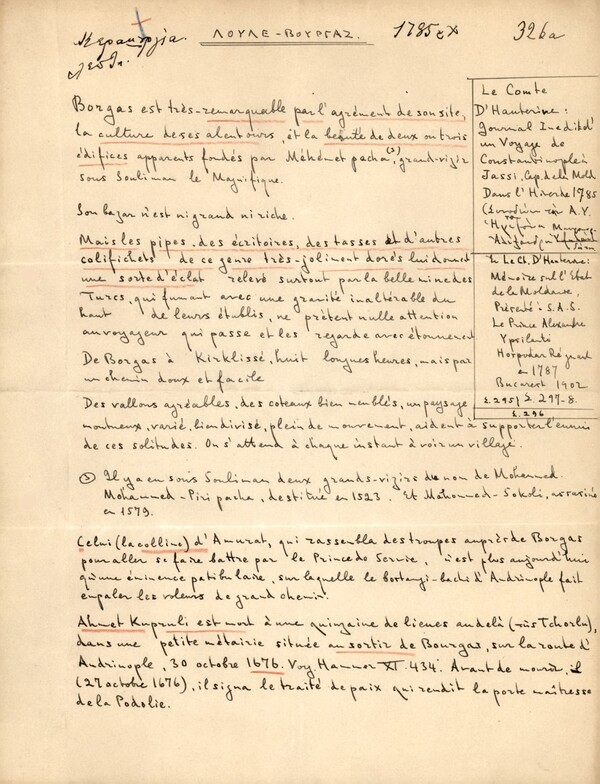 ΛΟΥΛΕ-ΒΟΥΡΓΑΖ. 1785 326a
Borgas est très-remarquable par l'agrément de son site,
la culture de ses alentours, et la beauté de deux ou trois
édifices apparents fondés par Méhémet pacha(3), grand-vizir
sous Souliman le Magnifique.
Son bazar n'est ni grand ni riche.
Mais les pipes, des écritoires, des tasses et d'autres
colifichets de ce genre très-joliment dorés lui donnent
une sorte d'éclat relevé surtout par la belle mine des
Turcs, qui fumant avec une gravité inaltérable du
haut de leurs établis, ne prêtent nulle attention
au voyageur qui passe et les regarde avec étonnement
De Borgas à Kirklissé, huit longues heures, mais par
un chemin doux et facile
Des vallons agréables, des coteaux bien meublés, un paysage
montueux, varié, bien divisé, plein de mouvement, aident à supporter l'ennui
de ces solitudes. On s'attend à chaque instant à voir un village.
(3) Il y a eu sous Souliman deux grands-vizirs du nom de Mohammed.
Mohammed-Piri pacha, destitué en 1523. Et Mahommed-Sokoli, assassiné
en 1579.
Celui (la colline) d'Amurat, qui rassembla des troupes auprès de Borgas
pour aller se faire battre par le Prince de Servie, n'est plus aujourd'hui
qu'une éminence patibulaire, sur laquelle le bostangi-bachi d'Andrinople fait
empaler les voleurs de grand chemin.
Ahmet Kupruli est mort à une quinzaine de lieues au delà (τῆς Tchorlu),
dans une petite métairie située au sortir de Bourgas, sur la route d'
Andrinople, 30 octobre 1676. Voy. Hammer XI. 434. Avant de mourir, il
(27 octobre 1676), il signa le traité de paix qui rendit la porte maîtresse
de la Podolie.
Le Comte
D'Hauterive:
Journal Inedit d'
un Voyage de
Constantinople à
Jassi, Cap. de la Mold
Dans l'Hiver de 1785
Le Ct. D'Hauterive:
Mémoire sur l'Etat
de la Moldavie,
Présenté à S.A.S.
Le Prince Alexandre
Ypsilanti
Hospodar Régnant
en 1787
Bucarest 1902
σ. 295/ σ. 297-8.
σ. 296